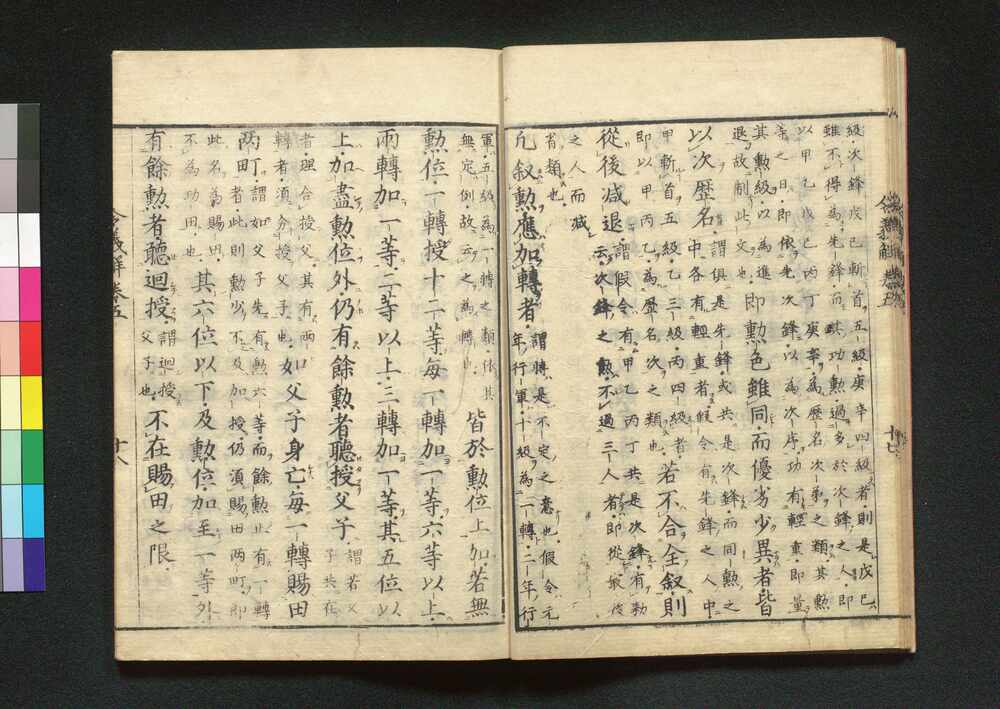 級次鋒戊己斬首五級庚辛四級者則是戊己
雖不得為先鋒而其功勲過多於次鋒之人即
以甲乙戊己丙丁庚辛為歴名次第之類其勲
等之日即依先次鋒以為次序功有輕重即量
其勲級以為進
退故削此文也
即勲色雖同而優劣少異者皆
以次歴名
謂俱是先鋒或共是次鋒而同勲之
中各有輕重者假令有先鋒之人中
甲斬首五級乙三級丙四級者
即以甲丙乙為歴名次之類也
若不合全叙則
從後減退
謂假令有甲乙丙丁共是次鋒有勅
云次鋒之勲不過三人者即從最後
之人而減
省類也
凡叙勲應加轉者
謂轉是不定之意也假令元
年行軍十級為一轉二年行
軍五級為一轉之類依其
無定例故云之為轉也
皆於勲位上加若無
勲位一轉授十二等每一轉加一等六等以上
兩轉加一等二等以上三轉加一等其五位以
上加盡勲位外仍有餘勲者聽授父子
謂若父
子共在
者理合授父其有兩
轉者須分授父子也
如父子身亡每一轉賜田
兩町
謂如父子先有勲六等而餘勲止有一轉
者此則勲少不及加授仍須賜田兩町即
此名為賜田
不為功田
其六位以下及勲位加至一等外
有餘勲者聽迴授
謂迴授
父子也
不在賜田之限
令義解巻五
十七
令義解巻五
十八